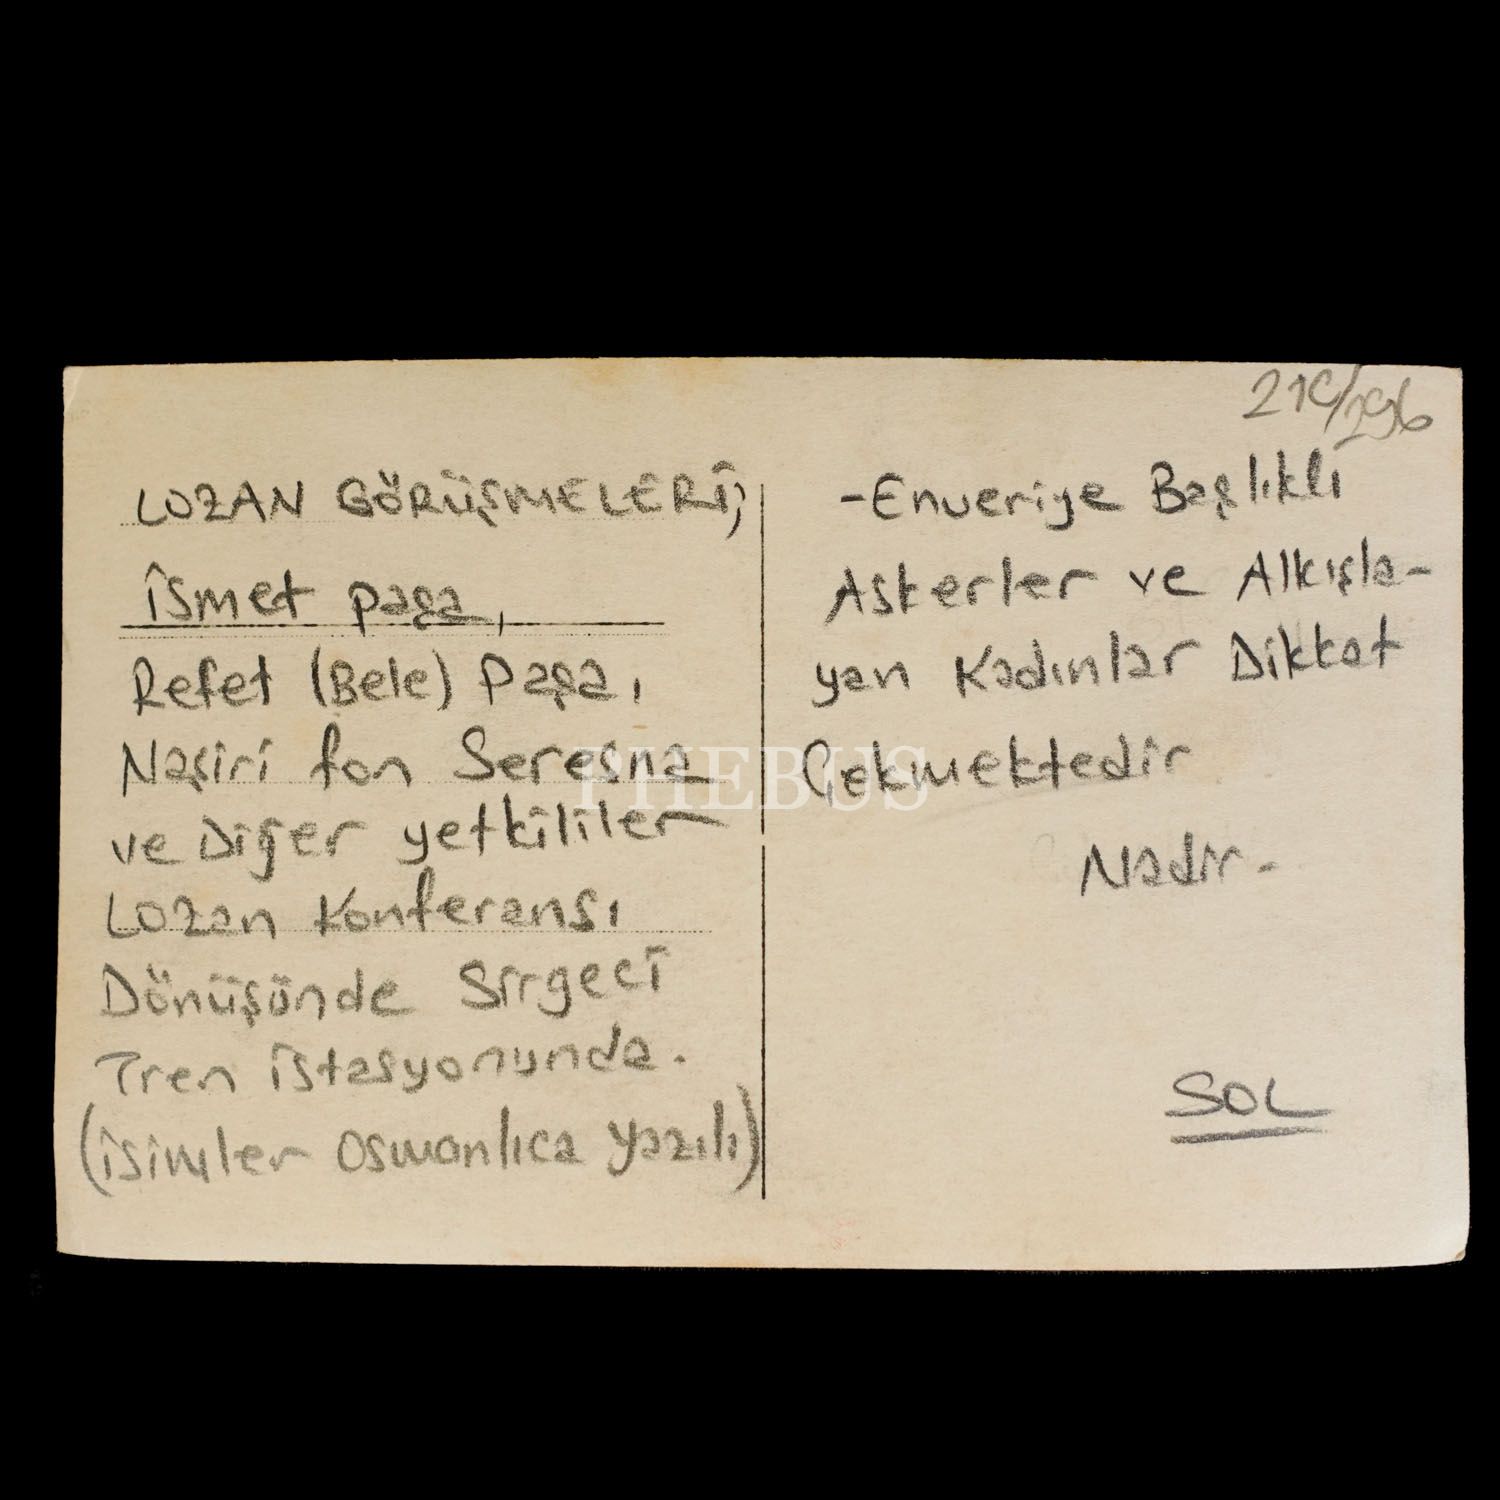 LOZAN GÖRÜŞMELERİ;
İsmet paşa,
Refet (Bele) Paşa,
Naşiri fon Seresna
ve Diğer yetkililer
Lozan Konferansı
Dönüşünde Sirgeci
Tren istasyonunda.
(İsimler Osmanlıca Yazılı)
-Enveriye Başlıklı
Askerler ve Alkışla-
yan Kadınlar Dikkat
Çekmektedir
Nadir-
SOL
PHEBUS